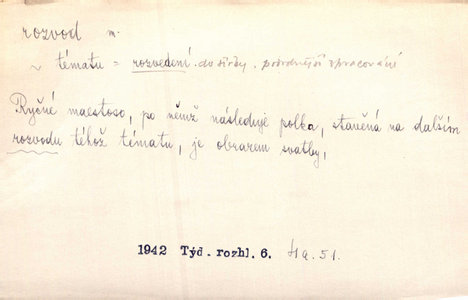 rozvod m.
~ tématu = rozvedení do šířky, podrobnější zpracování
Ryčné maestoso, po němž následuje polka, stavěná na dalším
rozvodu téhož tématu, je obrazem svatby,
1942 Týd. rozhl. 6. Ha. 51.